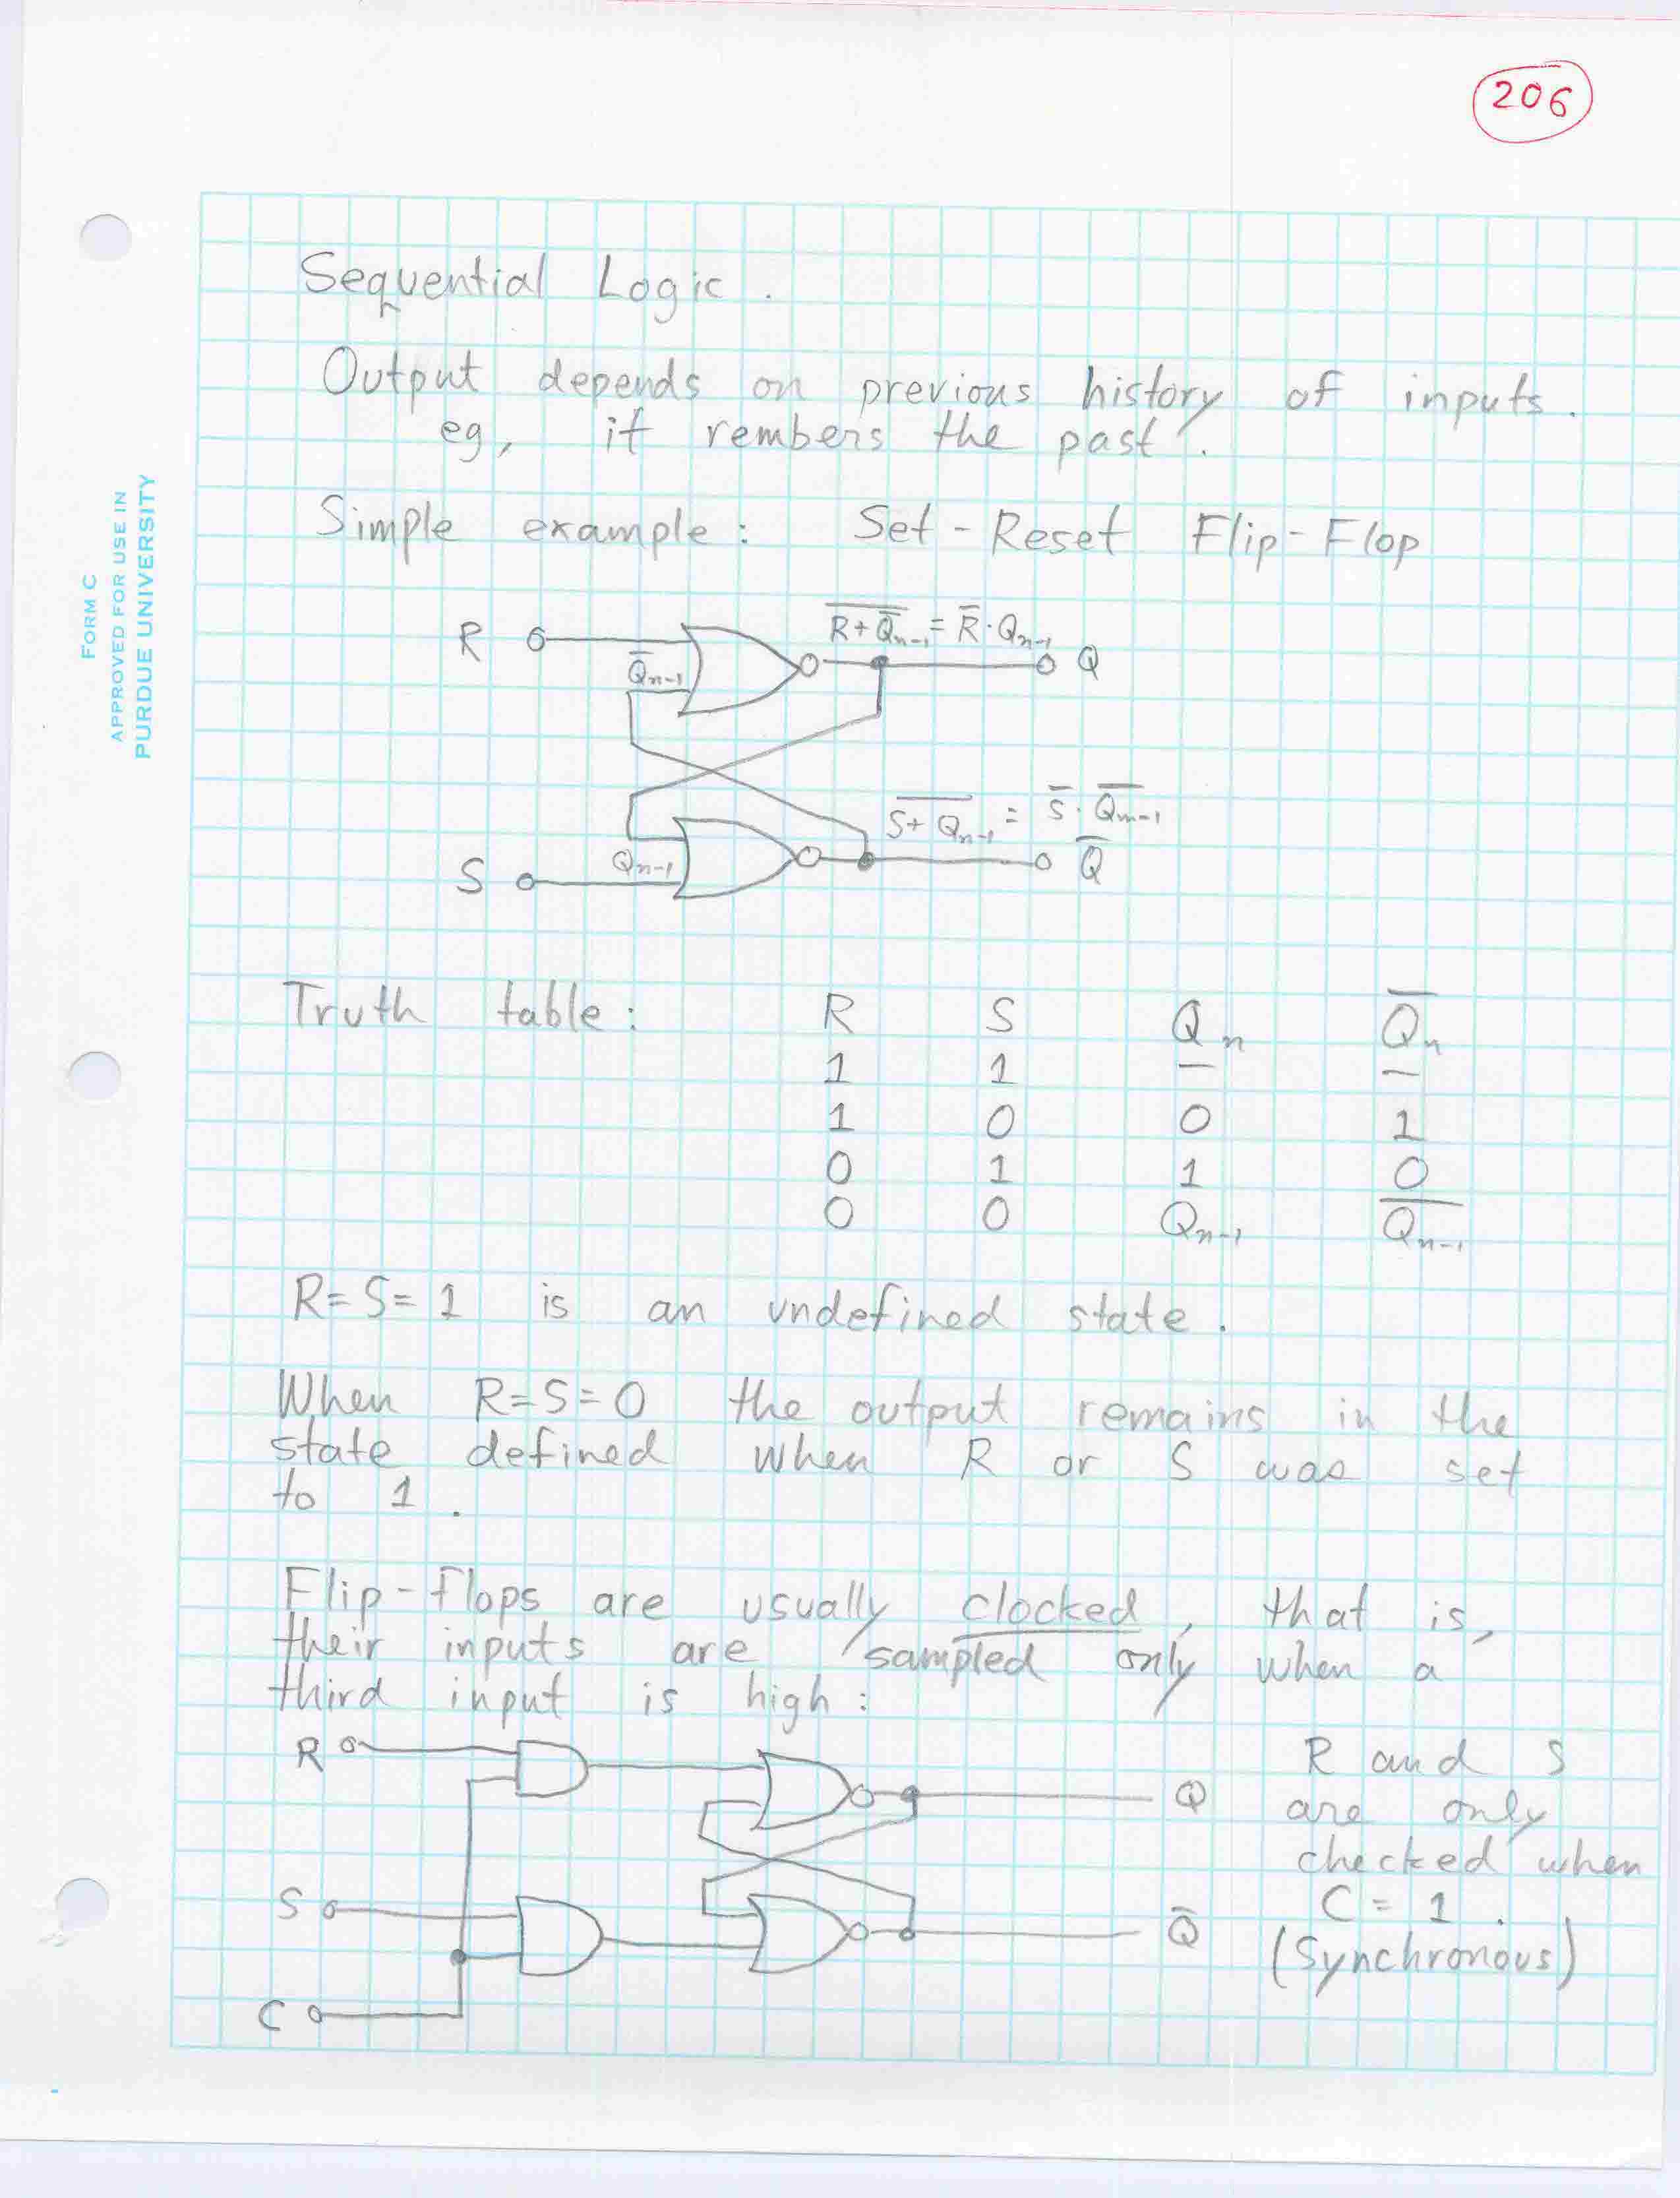 206
FORM C
APPROVED FOR USE IN
PURDUE UNIVERSITY
Sequential Logic .
Output depends on previous history of inputs .
eg, it rembers the past .
Simple example : Set-Reset Flip-Flop
R
Q̅ₙ₋₁
\overline{R+Q̅ₙ₋₁} = R̅·Qₙ₋₁
Q
\overline{S+Qₙ₋₁} = S̅·\overline{Qₙ₋₁}
S
Qₙ₋₁
Q̅
Truth table : R S Qₙ \overline{Qₙ}
1 1 — —
1 0 0 1
0 1 1 0
0 0 Qₙ₋₁ \overline{Qₙ₋₁}
R=S=1 is an undefined state .
When R=S=0 the output remains in the
state defined when R or S was set
to 1 .
Flip-flops are usually clocked, that is,
their inputs are sampled only when a
third input is high :
R
Q
S
Q̅
C
R and S
are only
checked when
C = 1 .
(Synchronous)